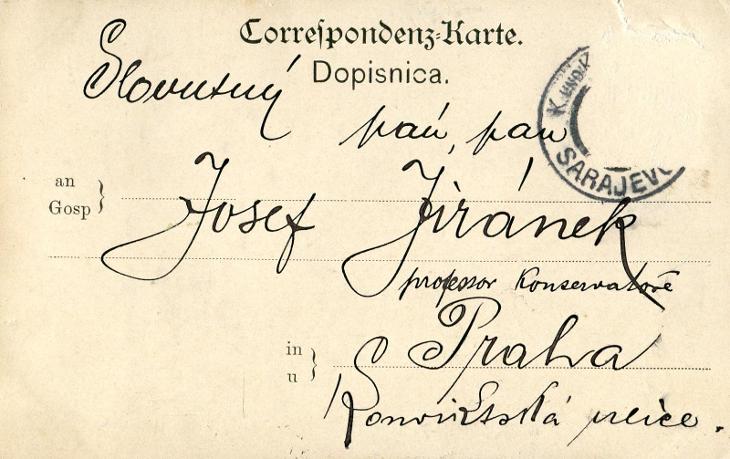 Correspondenz-Karte.
Dopisnica.
Slovutný
pan, pan
an
Gosp
Josef Jiránek
professor Konservatoře
in
u
Praha
Konviktská ulice.
K. und K.
SARAJEVO